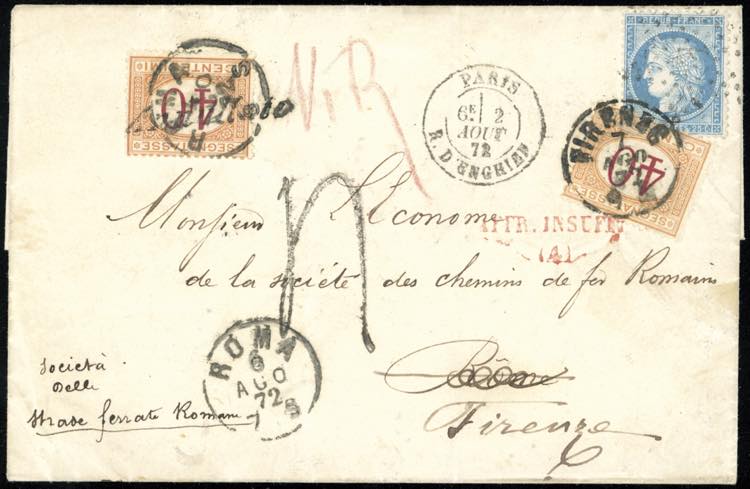 REPUB. FRANC.
25
40
SEGNATASSE
PARIS
6E 2
AOUT
72
R. D'ENGHIEN
FIRENZE
7
AGO
40
SEGNATASSE
Monsieur L'Econome
AFFR. INSUFF.
(A)
de la société des chemins de fer Romains
ROMA
6
AGO
72
7 S
Rome
Firenze
Società
delle
Strade ferrate Romane